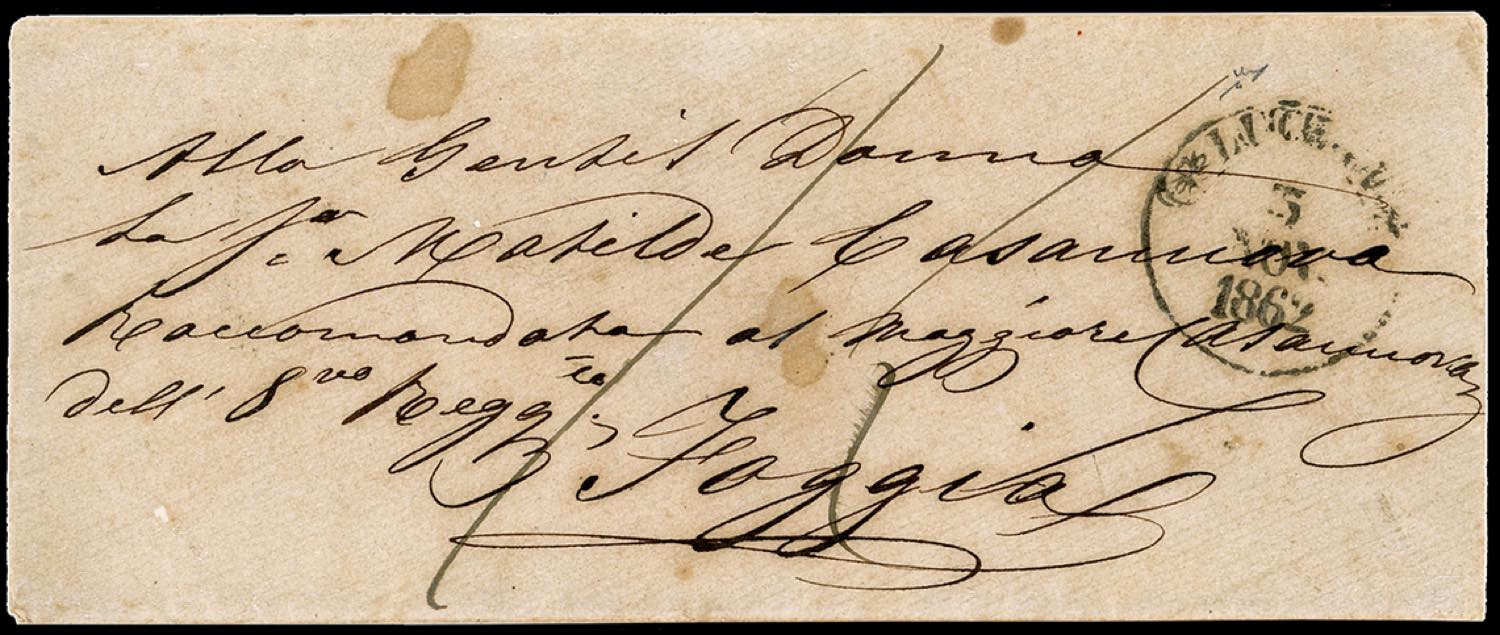 Alla Gentil Donna
La Sra. Matilde Casanuova
Raccomandata al Maggiore Casanuova
dell' 8vo Reggto
Foggia
3
NOV.
1862